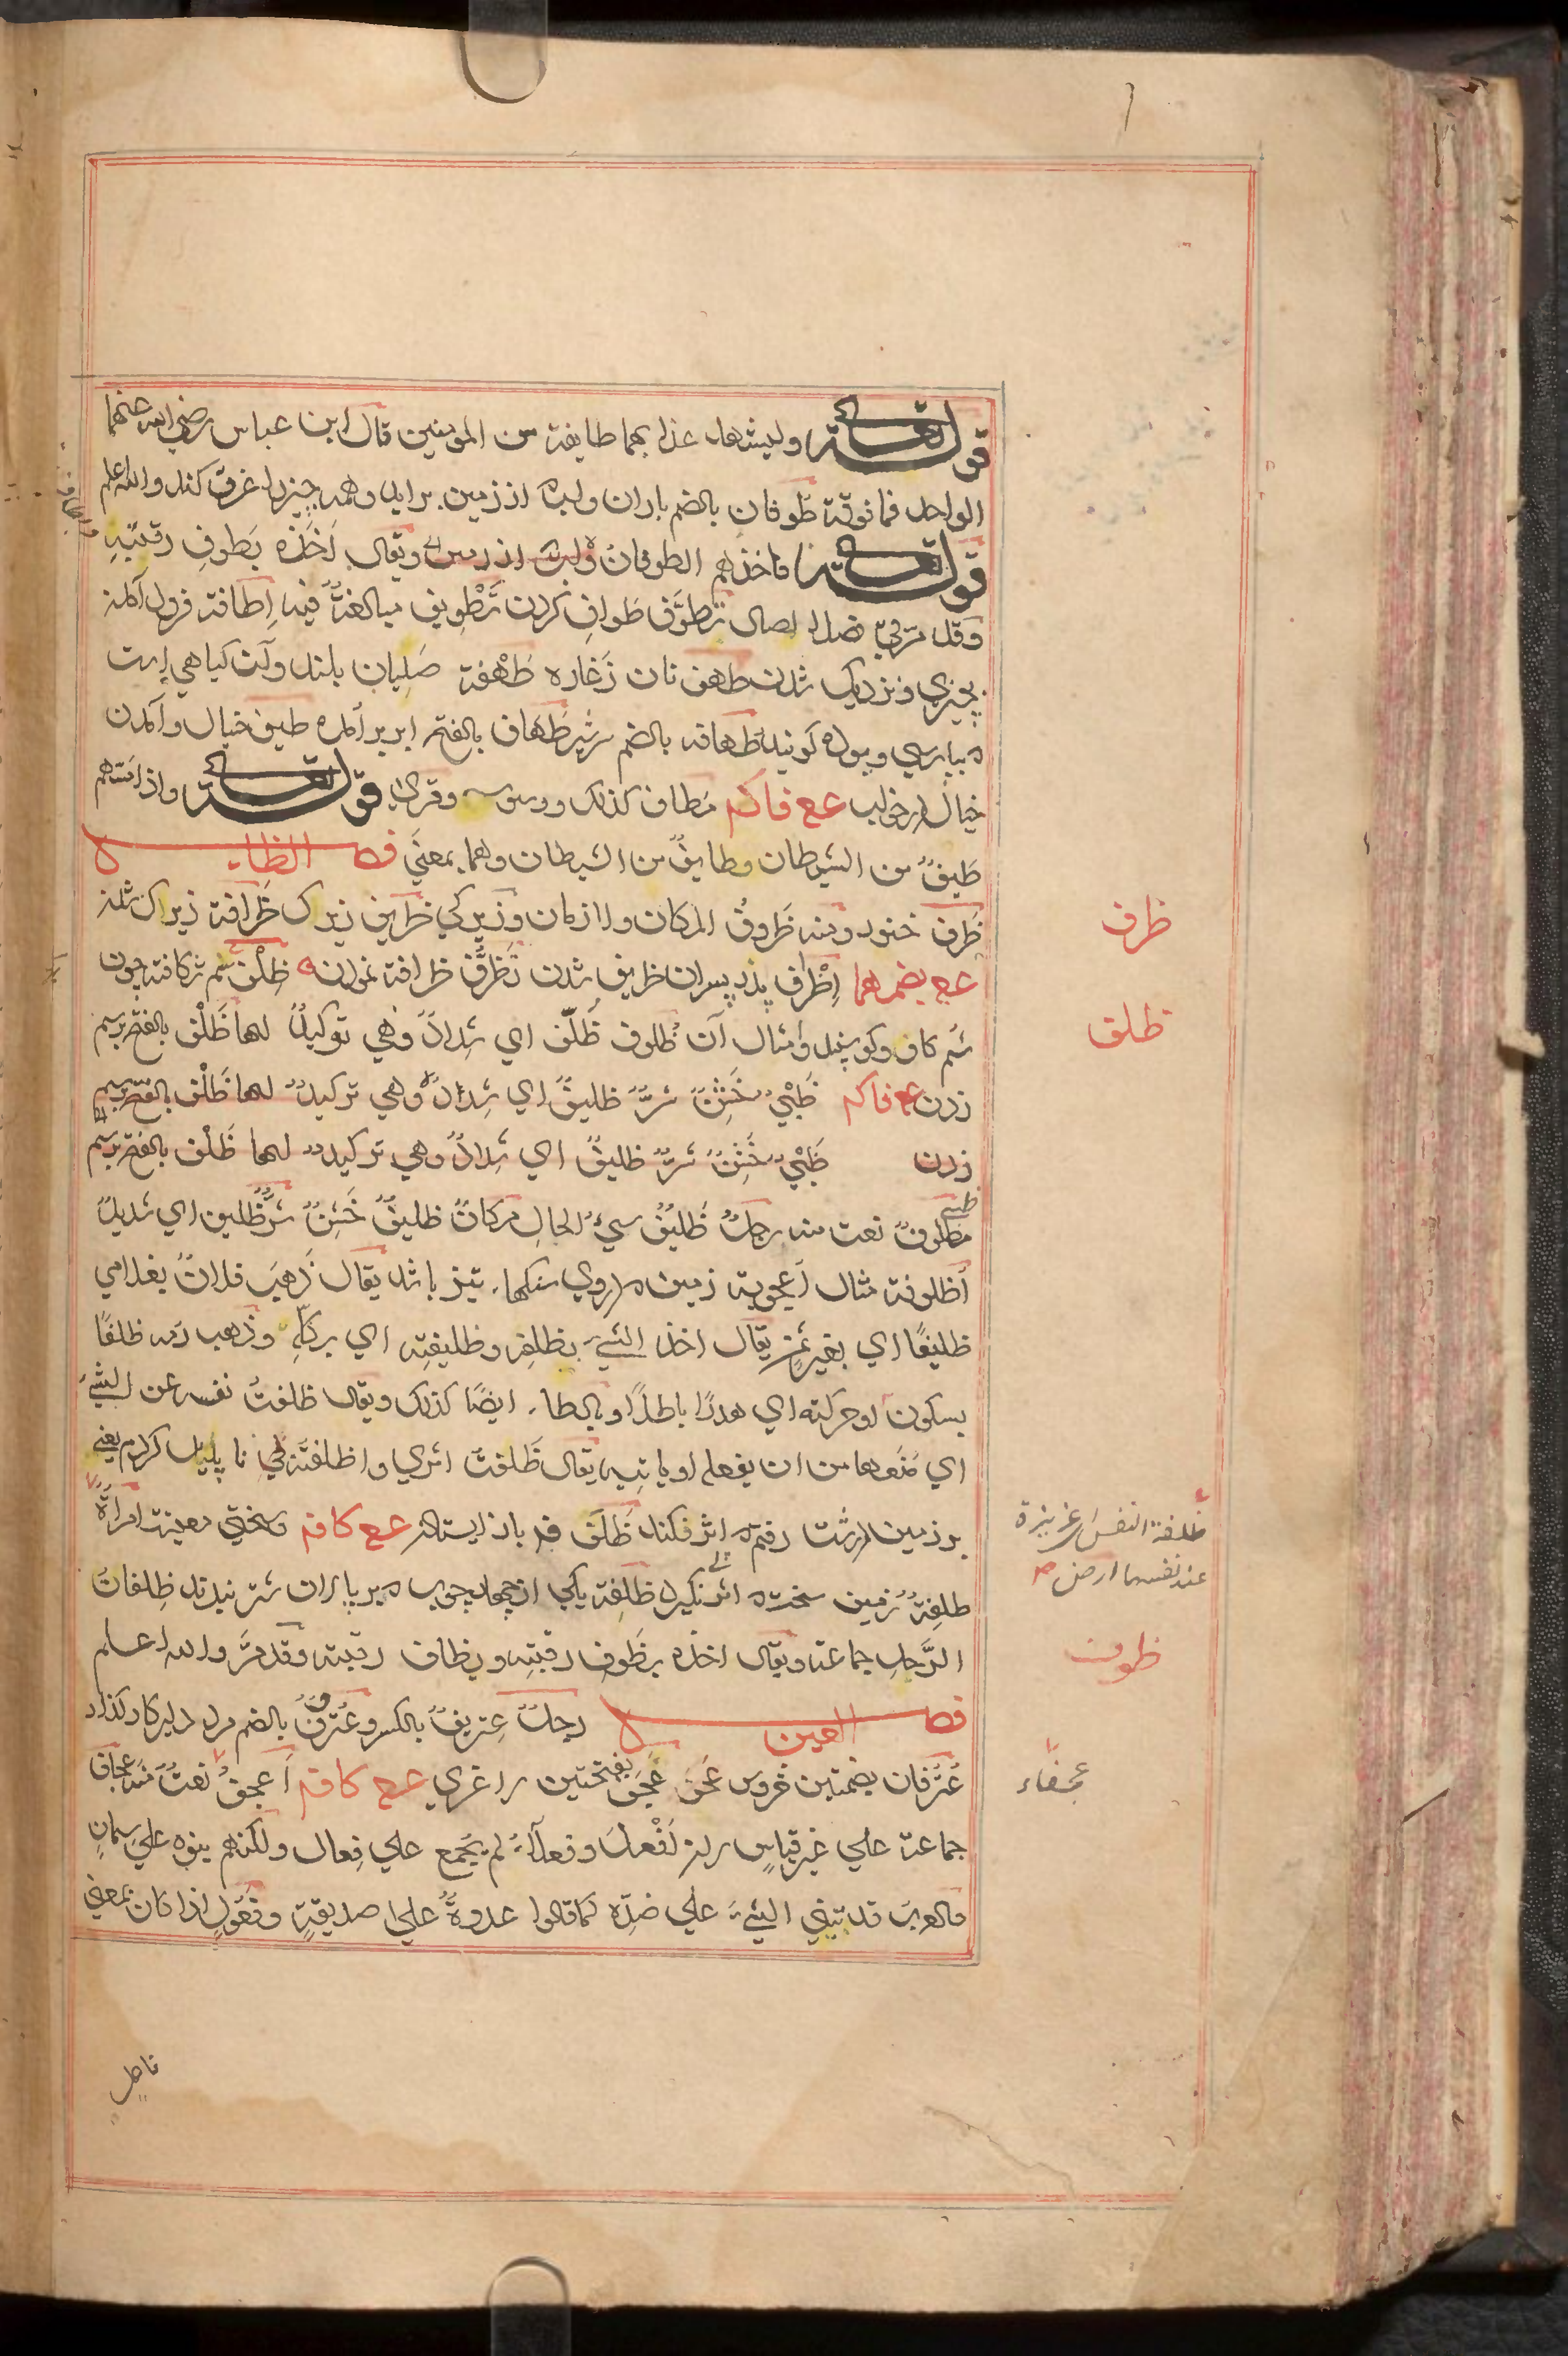 قوله تعالى وليشهد عذابهما طايفة من المومنين قال ابن عباس رضي الله عنهما
الواحد فما فوقه طوفان بالضم باران و از زمين برايد وهمه چيز را غرق كند والله اعلم
قوله تعالى فاخذهم الطوفان ويقال اَخَذَه بطوفِ رقبتِهِ
وقد مرّ في تَطوُّف طواف كردن تَطْوِيف مبالغةٌ فيه اِطافة فرود آمدن
بچيزي و نزديک شدن طهف نان طَهْفة صَلِيان بلند وآن گياهي است
طهافه بالضم سرشير طَهاف بالفتح ابر برآمده طيف خيال وآمدن
خيال در خواب عع فاكم مَطاف كذلک ووسوسه وقري قوله تعالى واذا مسّهم
طَيفٌ من الشيطان وطايفٌ من الشيطان وهما بمعنًي فصل الظاء
ظَرف خنور ومنه ظروفُ المكان والازمان وزيركي ظريف زيرک ظَرافة زيرک شدن
عع بضمهما اِظْراف پدر پسران ظريف شدن تَظَرُّف ظرافة نمودن ظِلْف سُم شكافته چون
سُم گاو و گوسپند و امثال آن ظُلوف ظُلّف اي شِدادٌ وهي توكيدٌ لها ظَلْف بالفتح برسم
زدن عع فاكم ظَبْيٌ خَشِنٌ شرٌّ ظليفٌ اي شِدادٌ وهي توكيدٌ لها ظَلْف بالفتح برسم
زدن ظَبْيٌ خَشِنٌ شرٌّ ظليفٌ اي شِدادٌ وهي توكيد لها ظَلْف بالفتح برسم
ظبي مظلوفٌ نعت منه رجلٌ ظَلِيفٌ سيءُ الحالِ مكانٌ ظليفٌ خَشِنٌ شرٌّ ظَلِيف اي شديدٌ
اُظلوفة مثال اُعجوبة زمين در وي سنگها تيز باشد يقال ذهبَ فلانٌ بغلامي
ظليفًا اي بغير ثمن يقال اخذ الشيءَ بظلِفِهِ وظليفتِه اي بكلّهِ وذهب دمه ظلفًا
بسكون او حركته اي هدرًا باطلًا وبالطاء ايضًا كذلک ويقال ظلفتُ نفسه عن الشيءِ
اي مَنَعها من ان يفعله او ياتيه يقال ظَلفتُ اثري واظلفته اي ناپديد كردم يعني
بر زمين درشت رفتم اثر نكند ظَلَف عع كافم وسختي معيشة امراةٌ
ظلِفةٌ زمين سخت اثر نگيرد ظلِفة يكي از چهار چوب بر پالان شتر ظلِفاتُ
الرَّحلِ جماعة ويقال اخذه بظُوفِ رقبتِه وبظاف رقبته وقد مرّ والله اعلم
فصل العين رجلٌ عِتريفٌ بالكسر وعُترُفٌ بالضم مرد دلير
عُترُفان بضمتين خروس عَجَف بفتحتين لاغري عع كافم اَعجفُ نعتٌ منه عِجاف
جماعة علي غير قياسٍ لان اَفْعلَ وفعلاءَ لم يُجمع علي فِعال ولكنهم بنوه علي سِمانٍ
والعرب قد تبني الشيءَ علي ضدِّه كما قالوا عدوةٌ علي صديقةٍ وفَعُولٍ اذا كان بمعني
ظرف
ظلف
ظلفة النفس عزيزة
عند نفسها
ظوف
عجفاء
فاعل